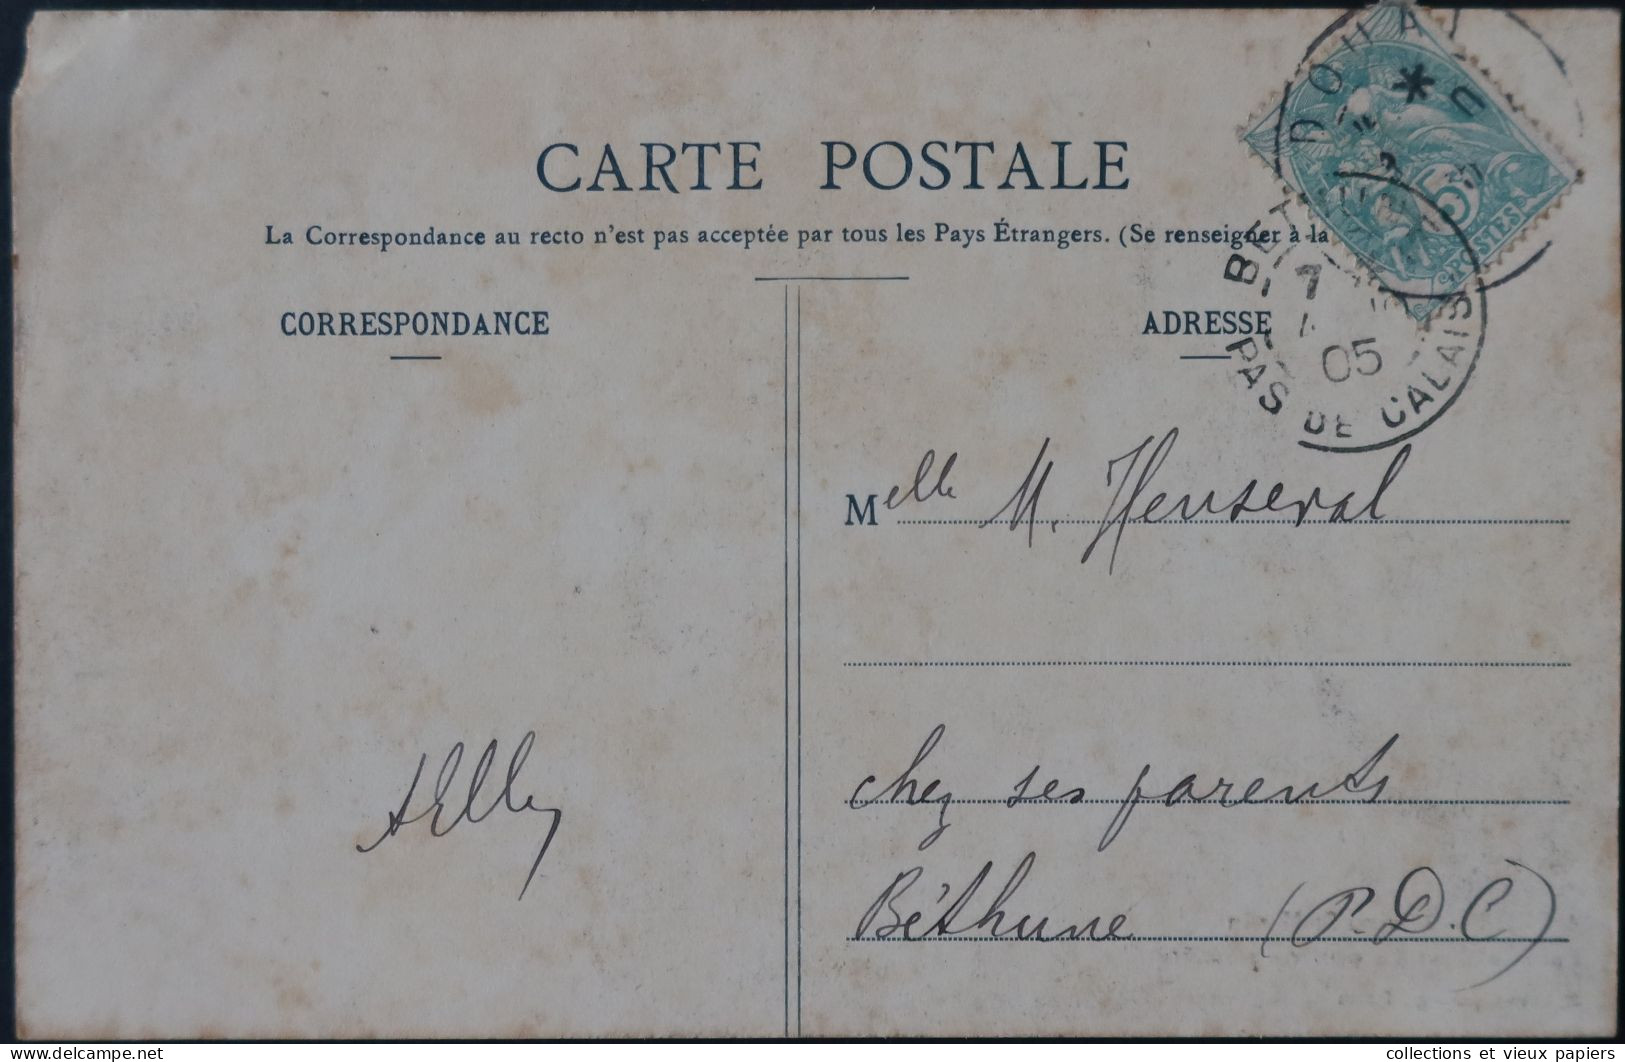 CARTE POSTALE
La Correspondance au recto n'est pas acceptée par tous les Pays Étrangers. (Se renseigner à la
CORRESPONDANCE
ADRESSE
DOUAI
POSTES
5
BETHUNE
05
PAS DE CALAIS
Melle M. Henseval
chez ses parents
Béthune (P.D.C)
delcampe.net
collections et vieux papiers